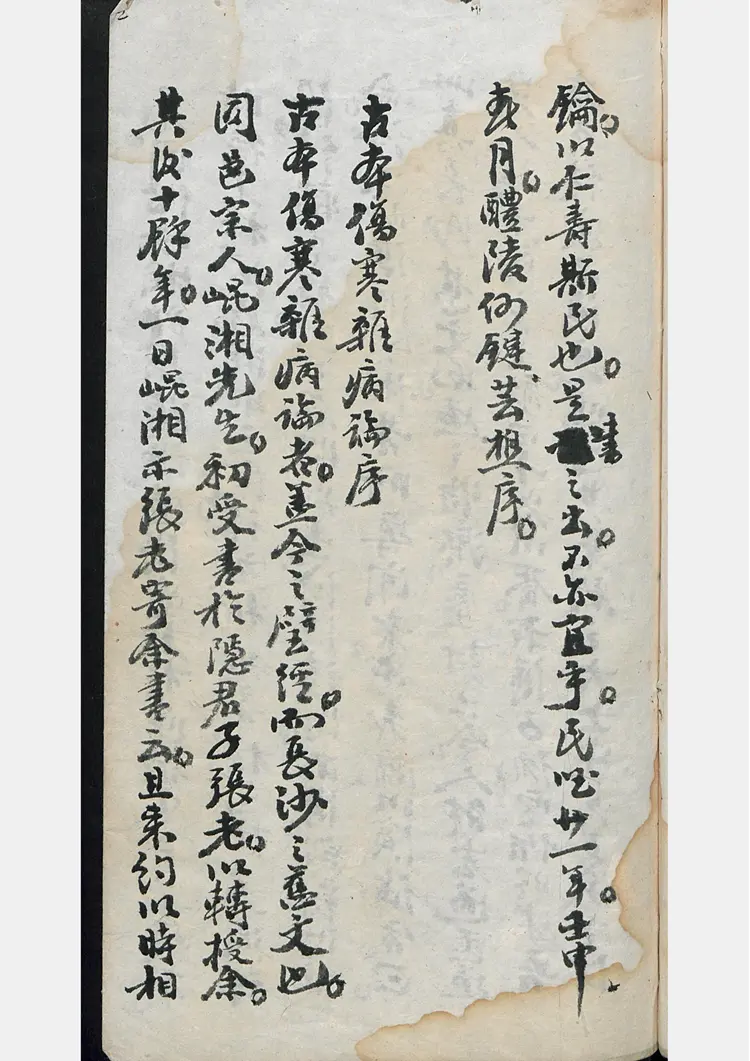 鑰。以仁壽斯民也。是書之出。不亦宜乎。民國廿一年。壬申
春月。醴陵何鍵、芸樵序。
古本傷寒雜病論序
古本傷寒雜病論者。蓋今之壁經。而長沙之舊文也。
同邑宗人。崐湘先生。初受書於隱君子張老。以轉授余。
其後十餘年。一日崐湘示張老寄余書云。且來約以時相